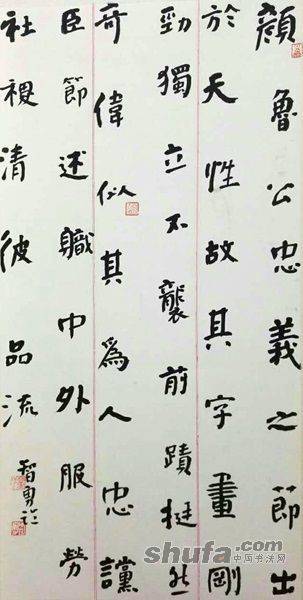 顏魯公忠義之節出
於天性故其字畫剛
勁獨立不襲前蹟挺然
奇偉似其為人忠讜
臣節述職中外服勞
社稷清彼品流
智勇
shufa.com
中国书法网